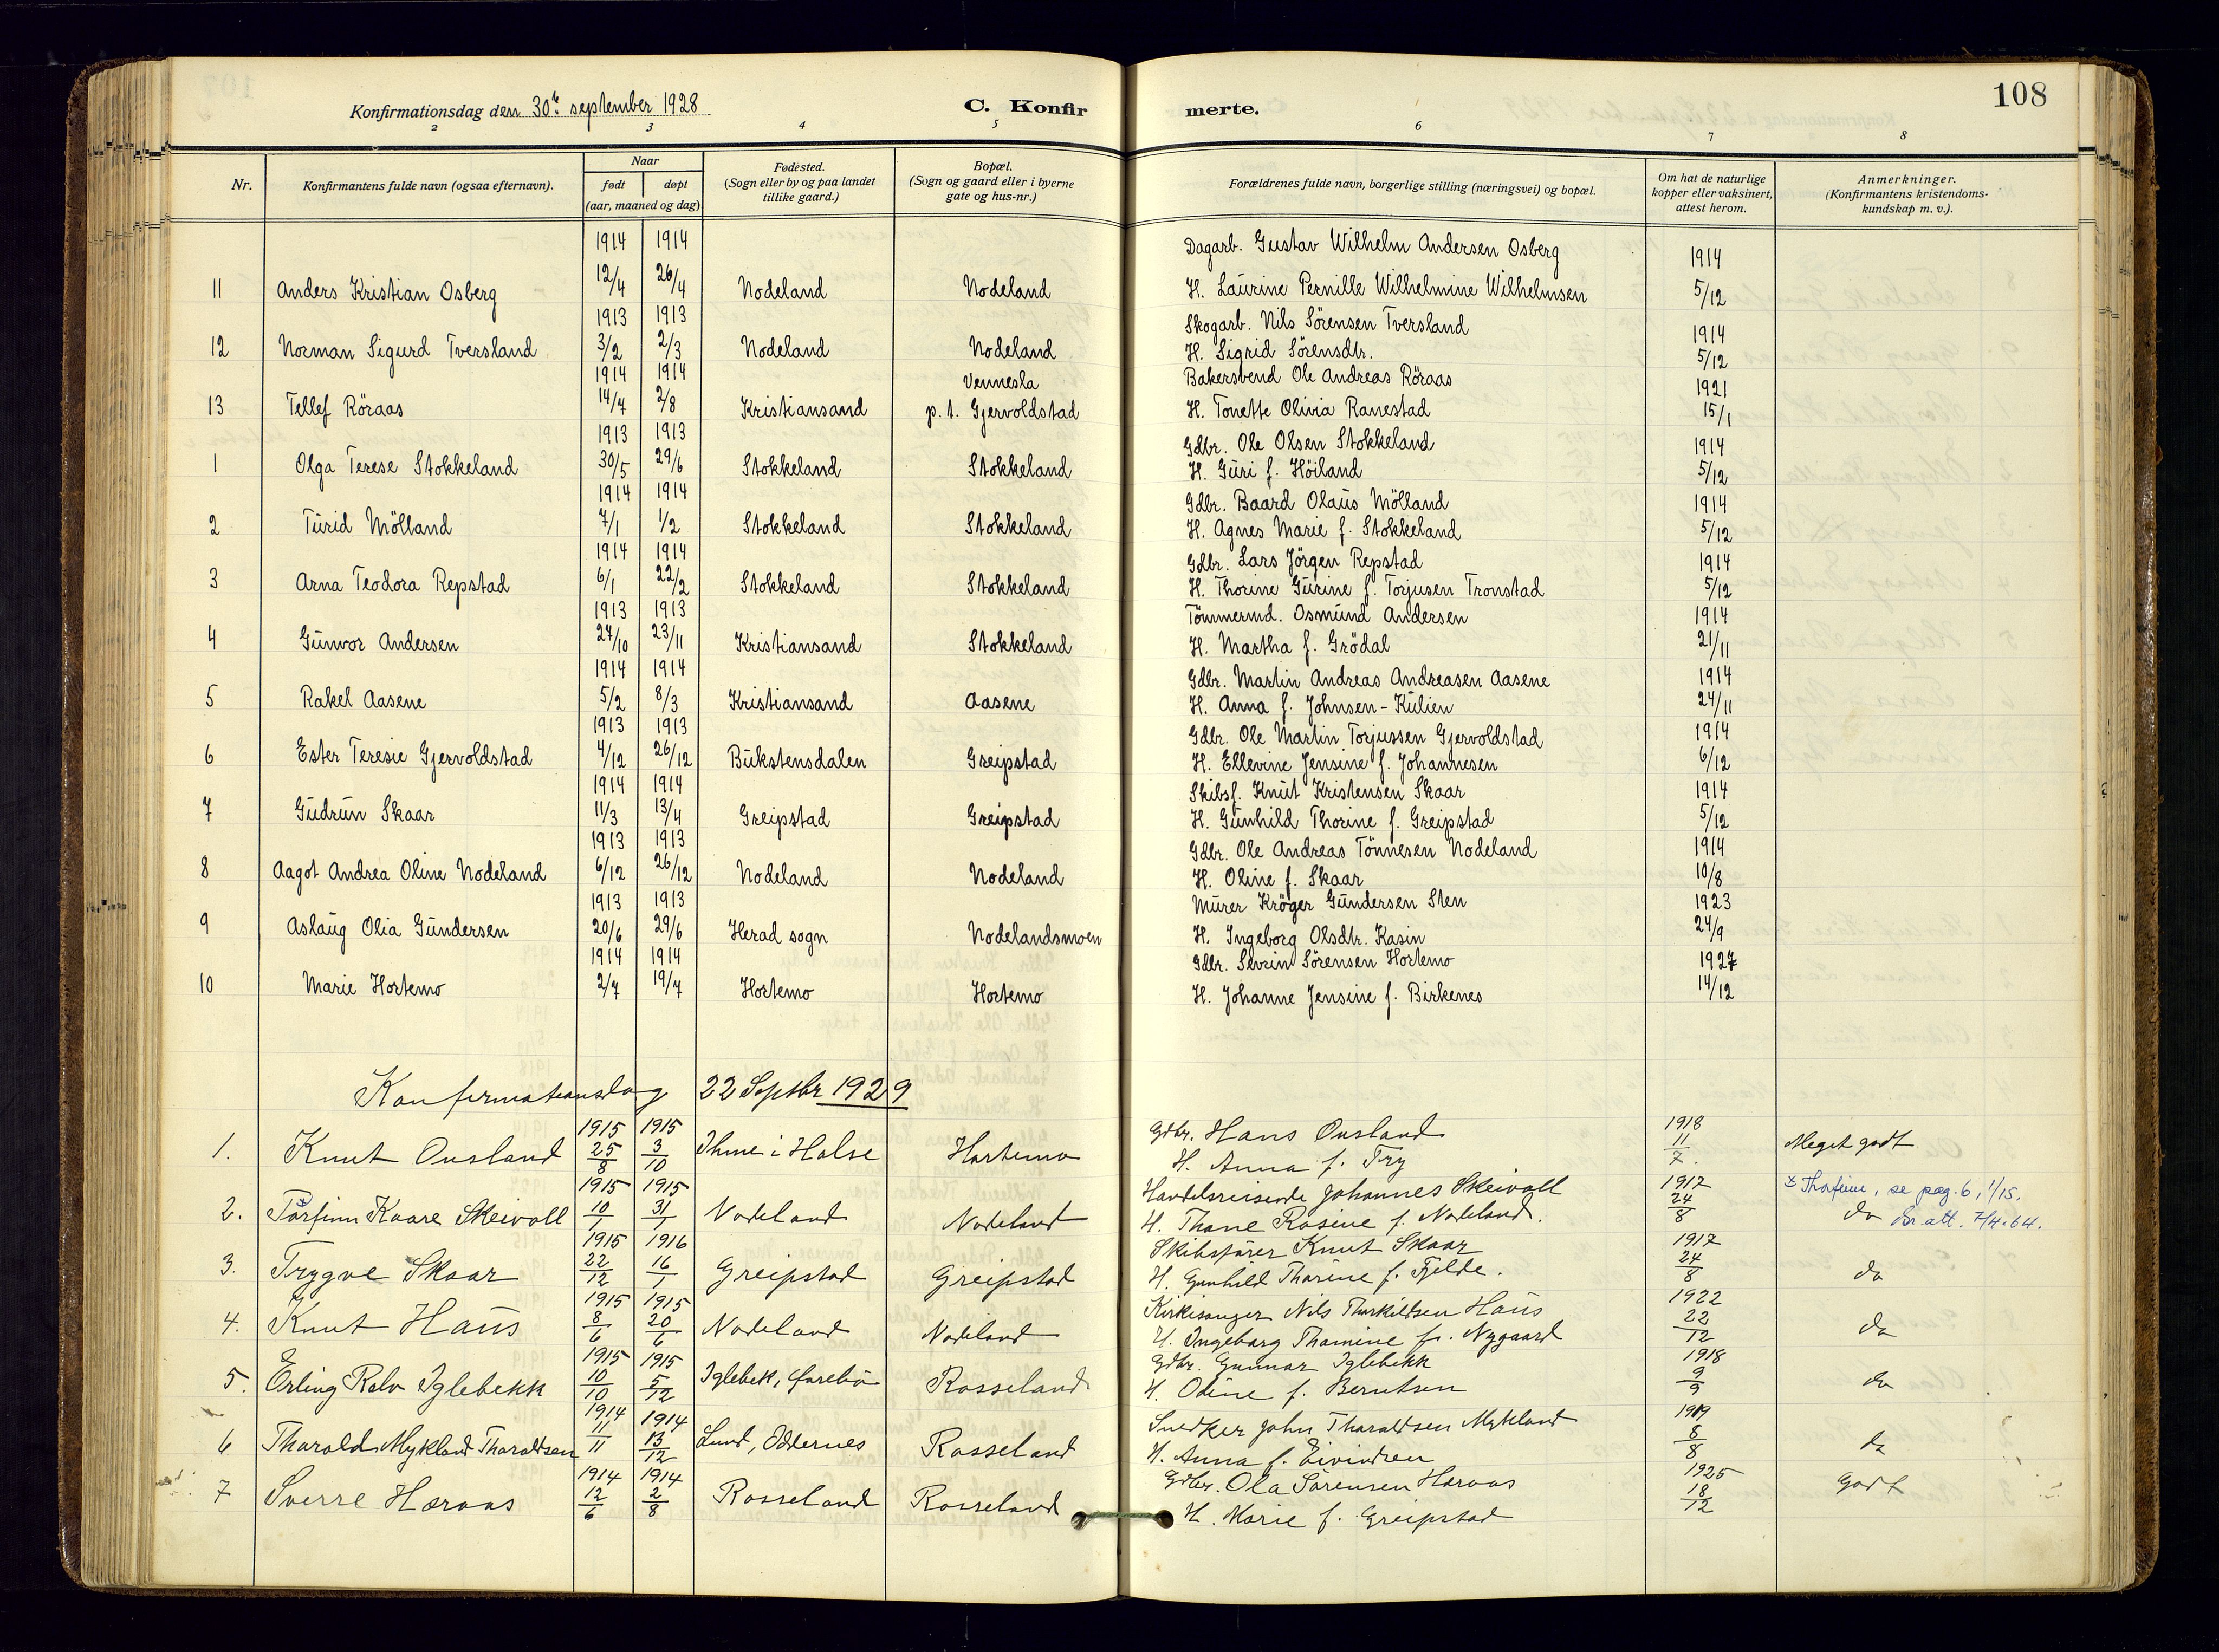 108
Konfirmationsdag den 30te september 1928
C. Konfir merte.
2 3 4 5 6 7 8
Nr.
Konfirmantens fulde navn (ogsaa efternavn).
Naar
født døpt
(aar, maaned og dag)
Fødested.
(Sogn eller by og paa landet
tillike gaard.)
Bopæl.
(Sogn og gaard eller i byerne
gate og hus-nr.)
Forældrenes fulde navn, borgerlige stilling (næringsvei) og bopæl.
Om hat de naturlige
kopper eller vaksinert,
attest herom.
Anmerkninger.
(Konfirmantens kristendoms-
kundskap m. v.).
1914 1914 Dagarb. Gustav Wilhelm Andersen Osberg 1914
11 Anders Kristian Osberg 12/4 26/4 Nodeland Nodeland H. Laurine Pernille Wilhelmine Wilhelmsen 5/12
1913 1913 Skogarb. Nils Sörensen Tversland 1914
12 Norman Sigurd Tversland 3/2 2/3 Nodeland Nodeland H. Sigrid Sörensdtr. 5/12
1914 1914 Vennesla Bakersvend Ole Andreas Röraas 1921
13 Tellef Röraas 14/7 2/8 Kristiansand p. t. Gjervoldstad H. Tonette Olivia Ranestad 15/1
1913 1913 Gdbr. Ole Olsen Stokkeland 1914
1 Olga Terese Stokkeland 30/5 29/6 Stokkeland Stokkeland H. Guri f. Höiland 5/12
1914 1914 Gdbr. Baard Olaus Mölland 1914
2 Turid Mölland 7/1 1/2 Stokkeland Stokkeland H. Agnes Marie f. Stokkeland 5/12
1914 1914 Gdbr. Lars Jörgen Repstad 1914
3 Arna Teodora Repstad 6/1 22/2 Stokkeland Stokkeland H. Thorine Gurine f. Torjusen Tronstad 5/12
1913 1913 Tömmermd. Osmund Andersen 1914
4 Gunvor Andersen 27/10 23/11 Kristiansand Stokkeland H. Martha f. Grödal 21/11
1914 1914 Gdbr. Martin Andreas Andreasen Aasene 1914
5 Rakel Aasene 5/2 8/3 Kristiansand Aasene H. Anna f. Johnsen-Kulien 24/11
1913 1913 Gdbr. Ole Martin Torjussen Gjervoldstad 1914
6 Ester Teresie Gjervoldstad 4/12 26/12 Bukstensdalen Greipstad H. Ellevine Jensine f. Johannesen 6/12
1914 1914 Skibsf. Knut Kristensen Skaar 1914
7 Gudrun Skaar 11/3 13/4 Greipstad Greipstad H. Gunhild Thorine f. Greipstad 5/12
1913 1913 Gdbr. Ole Andreas Tönnesen Nodeland 1914
8 Aagot Andrea Oline Nodeland 6/12 26/12 Nodeland Nodeland H. Oline f. Skaar 10/8
1913 1913 Murer Kröger Gundersen Sten 1923
9 Aslaug Olia Gundersen 20/6 29/6 Herad sogn Nodelandsmoen H. Ingeborg Olsdtr. Kasin 24/9
1914 1914 Gdbr. Sevrin Sörensen Hortemo 1927
10 Marie Hortemo 2/7 19/7 Hortemo Hortemo H. Johanne Jensine f. Birkenes 14/12
Konfirmationsdag 22 Septbr 1929
1915 1915 Gdbr. Hans Ousland 1918
1. Knut Ousland 25/8 3/10 Ihme i Halse Hortemo H. Anna f. Try 11/7. Meget godt
1915 1915 Handelsreisende Johannes Skeivoll 1917 x Thorfinn, se pag. 6, 1/15.
2. Torfinn Kaare Skeivoll 10/1 31/1 Nodeland Nodeland H. Thane Rosine f. Nodeland. 24/8 do 7/4.64.
1915 1916 Skibsfører Knut Skaar 1917
3. Trygve Skaar 22/12 16/1 Greipstad Greipstad H. Gunhild Thorine f. Fjelde. 24/8 do
1915 1915 Kirkesanger Nils Thorkildsen Haus 1922
4. Knut Haus 8/6 20/6 Nodeland Nodeland H. Ingeborg Thomine f. Nygaard 22/12 do
1915 1915 Gdbr. Gunnar Iglebekk 1918
5. Erling Ralv Iglebekk 10/10 5/12 Iglebek, Øvrebö Rosseland H. Odine f. Berntsen 9/9 do
1914 1914 Snedker John Tharaldsen Mykland 1919
6 Tharald Mykland Tharaldsen 11/11 13/12 Lund, Oddernes Rosseland H. Anna f. Eivindsen 8/8 do
1914 1914 Gdbr. Ola Sørensen Horaas 1925
7 Sverre Høraas 12/6 2/8 Rosseland Rosseland H. Marie f. Greipstad 18/12 Godt